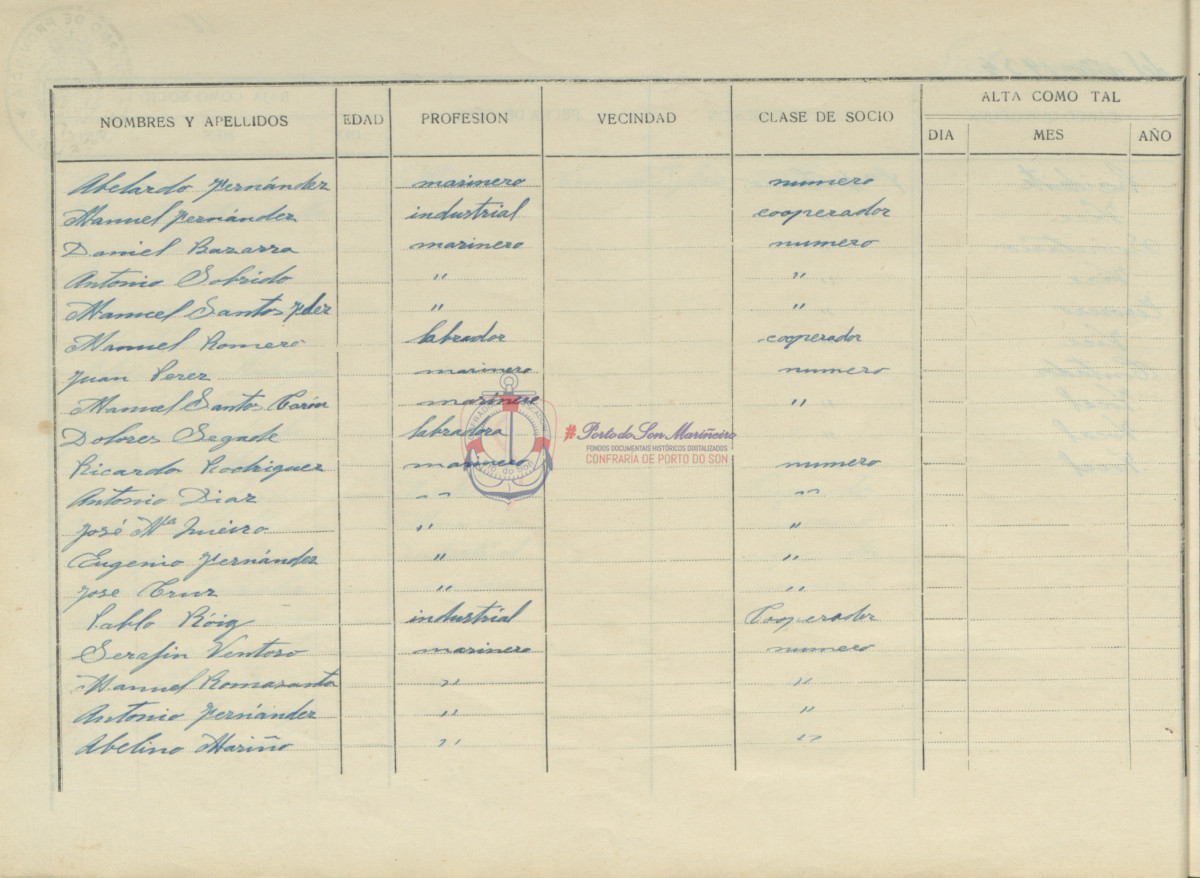 NOMBRES Y APELLIDOS EDAD PROFESION VECINDAD CLASE DE SOCIO ALTA COMO TAL
DIA MES AÑO
Abelardo Fernández marinero numero
Manuel Fernández industrial cooperador
Daniel Bazarra marinero numero
Antonio Sobrido " "
Manuel Santos Fdez " "
Manuel Romero labrador cooperador
Juan Perez marinero numero
Manuel Santos marinero "
Dolores Segade labradora
#Porto do Son Mariñeiro
FONDOS DOCUMENTAIS HISTÓRICOS DIXITALIZADOS
CONFRARÍA DE PORTO DO SON
Ricardo Rodriguez marinero numero
Antonio Diaz " "
José Mª " "
Eugenio Fernández " "
Jose Cruz " "
Pablo Róig industrial Cooperador
Serafin Ventoso marinero numero
Manuel Romasanta " "
Antonio Fernández " "
Abelino Mariño " "